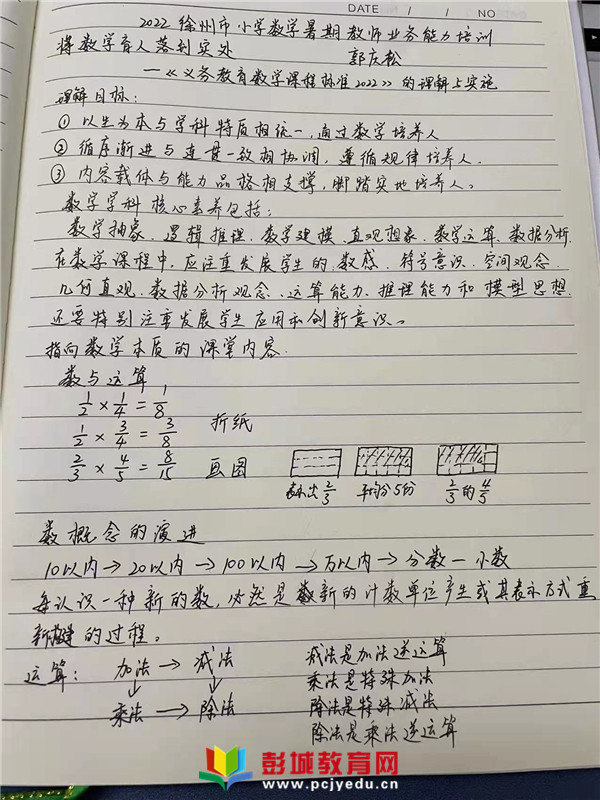 DATE / / NO
2022徐州市小学数学暑期教师业务能力培训
将数学育人落到实处 郭庆松
—《义务教育数学课程标准2022》的理解与实施
理解目标:
① 以生为本与学科特质相统一,通过数学培养人
② 循序渐进与连贯一致相协调,遵循规律培养人.
③ 内容载体与能力品格相支撑,脚踏实地培养人。
数学学科核心素养包括:
数学抽象、逻辑推理、数学建模、直观想象、数学运算、数据分析.
在数学课程中,应注重发展学生的数感、符号意识、空间观念、
几何直观、数据分析观念、运算能力、推理能力和模型思想.
还要特别注重发展学生应用和创新意识。
指向数学本质的课堂内容.
数与运算
1/2 × 1/4 = 1/8
1/2 × 3/4 = 3/8 折纸
2/3 × 4/5 = 8/15 画图
表示出2/3 平均分5份 2/3的4/5
数概念的演进
10以内→20以内→100以内→万以内→分数—小数
每认识一种新的数,必然是新的计数单位产生或其表示方式重
新构建的过程。
运算: 加法→减法 减法是加法逆运算
↓ ↓ 乘法是特殊加法
乘法→除法 除法是特殊减法
除法是乘法逆运算
彭城教育网
www.pcjyedu.cn